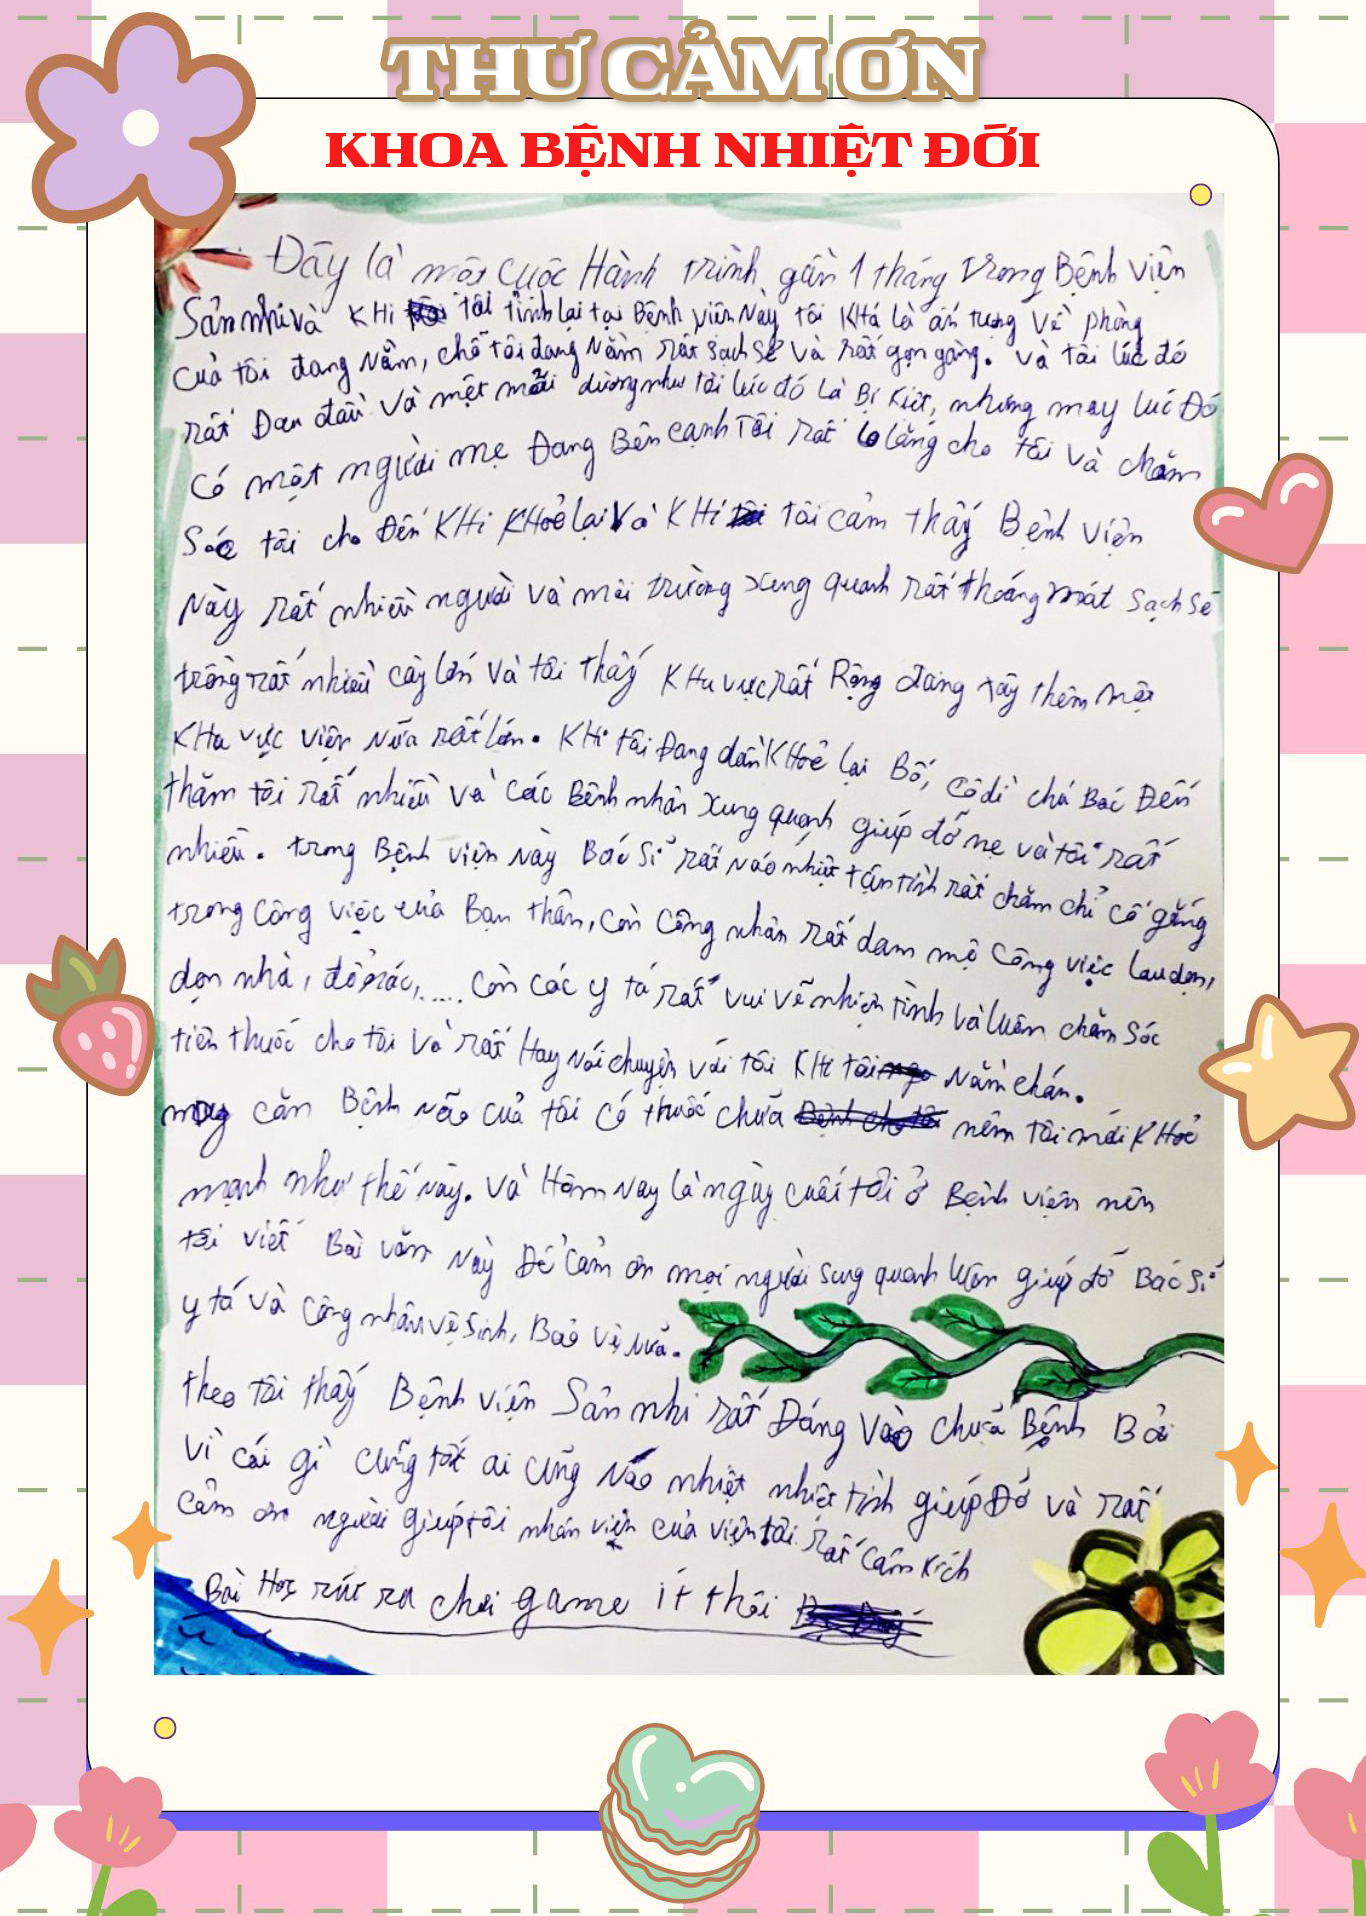 THƯ CẢM ƠN
KHOA BỆNH NHIỆT ĐỚI
Đây là một cuộc Hành trình gần 1 tháng trong Bệnh viện
Sản nhi và KHi tôi tỉnh lại tại Bệnh viện Này tôi KHá là ấn tượng về phòng
của tôi đang Nằm, chỗ tôi đang Nằm rất sạch sẽ và rất gọn gàng. và tôi lúc đó
rất Đau đầu và mệt mỏi dường như tôi lúc đó là Bí Kiệt, nhưng may lúc Đó
có một người mẹ Đang Bên cạnh Tôi rất lo lắng cho tôi và chăm
Sóc tôi cho Đến KHi KHoẻ lại Và KHi tôi cảm thấy Bệnh viện
Này rất nhiều người và môi trường xung quanh rất thoáng mát sạch sẽ
trồng rất nhiều cây lớn và tôi thấy KHu vực rất Rộng đang xây thêm một
KHu vực viện Nữa rất lớn. KHi tôi Đang dần KHoẻ lại Bố, cô dì chú Bác Đến
thăm tôi rất nhiều và các Bệnh nhân xung quanh giúp đỡ mẹ và tôi rất
nhiều. trong Bệnh viện Này Bác Sĩ rất Náo nhiệt tận tình rất chăm chỉ cố gắng
trong công việc của Bạn thân, còn công nhân rất dam mê công việc lau dọn,
dọn nhà, đổ rác,..... còn các y tá rất vui vẽ nhiện tình và luôn chăm sóc
tiên thuốc cho tôi và rất Hay Nói chuyện với tôi KHi tôi Nằm chán.
may căn Bệnh não của tôi có thuốc chữa nêm tôi mới KHoẻ
mạnh như thế này. Và Hôm Nay là ngày cuối tôi ở Bệnh viện nên
tôi viết Bài văn Này Để cảm ơn mọi người sung quanh luôn giúp đỡ Bác Sĩ
y tá và công nhân vệ sinh, Bảo vệ Nữa.
theo tôi thấy Bệnh viện Sản nhi rất Đáng Vào chữa Bệnh Bởi
vì cái gì cũng tốt ai cũng Náo nhiệt nhiệt tình giúp Đỡ và rất
cảm ơn người giúp tôi nhân viện của viện tôi rất cảm kích
Bài Học rút ra chơi game ít thôi